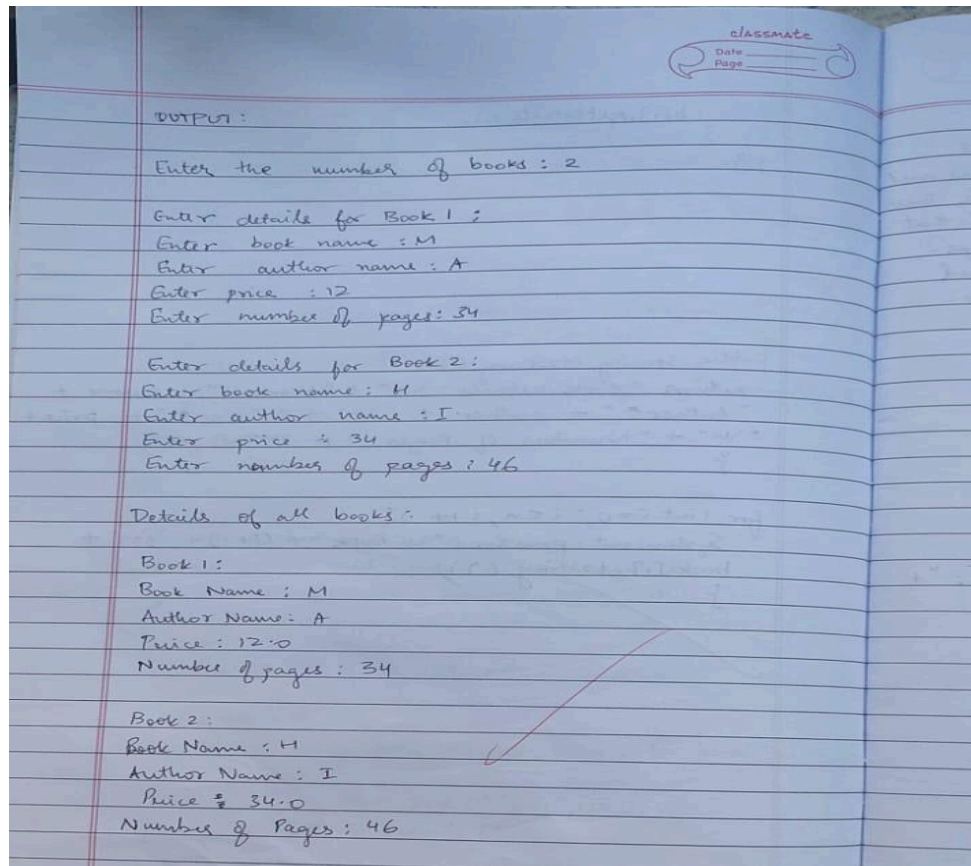 classmate
Date
Page
OUTPUT:
Enter the number of books : 2
Enter details for Book 1 :
Enter book name : M
Enter author name : A
Enter price : 12
Enter number of pages: 34
Enter details for Book 2 :
Enter book name : H
Enter author name : I
Enter price : 34
Enter number of pages : 46
Details of all books :
Book 1 :
Book Name : M
Author Name : A
Price : 12.0
Number of pages : 34
Book 2 :
Book Name : H
Author Name : I
Price : 34.0
Number of Pages : 46